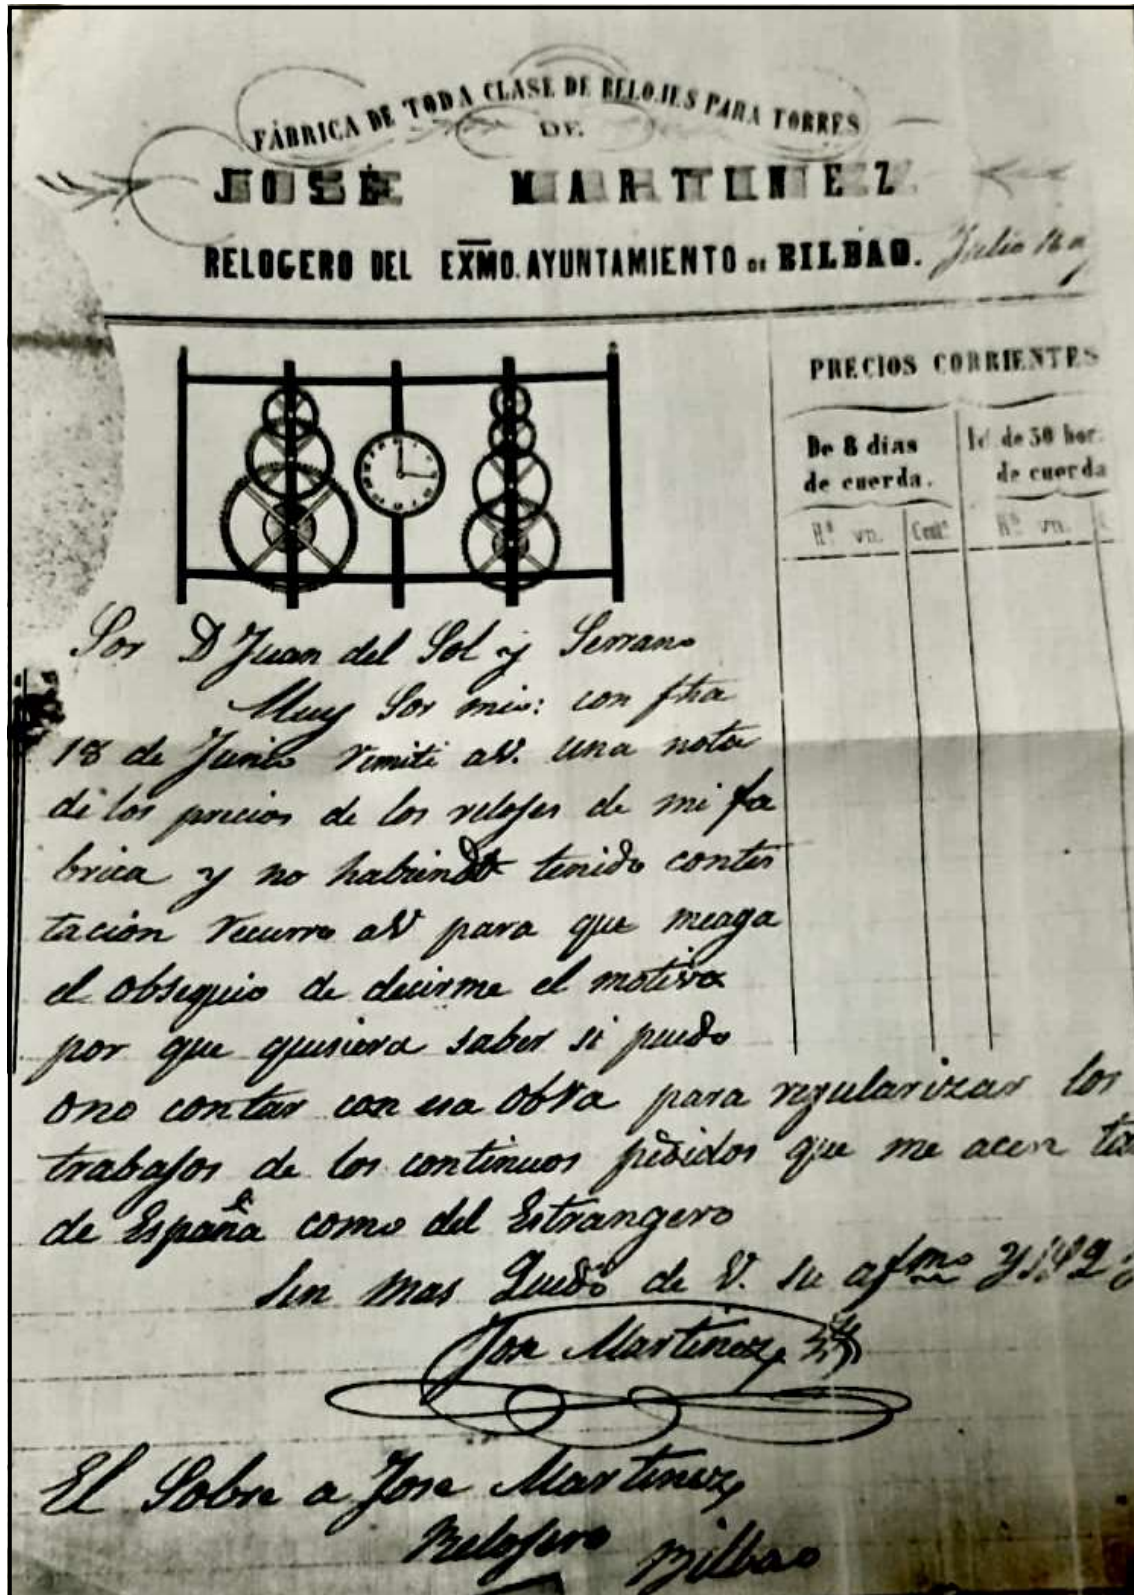 FÁBRICA DE TODA CLASE DE RELOJES PARA TORRES
DE
JOSÉ MARTINEZ
RELOGERO DEL EXMO. AYUNTAMIENTO DE BILBAO. Julio
PRECIOS CORRIENTES
De 8 dias de cuerda.
Id. de 30 hor. de cuerda
Rs. vn. Cents. Rs. vn. C
Sor D Juan del Sol y Serrano
Muy Sor mio: con fha
18 de Junio remiti aV. una nota
de los precios de los relojes de mi fa
brica y no habiendo tenido contes
tacion recurro aV para que meaga
el obsequio de decirme el motivo
por que quisiera saber si puedo
ono contar con esa obra para regularizar los
trabajos de los continuos pedidos que me acen ta
de España como del Estrangero
Sin mas Quedo de V. su afmo y
Jose Martinez
El Sobre a Jose Martinez
Relojero Bilbao